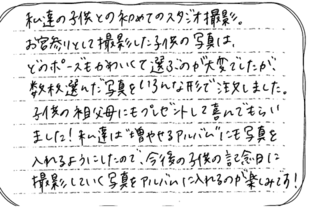 私達の子供との初めてのスタジオ撮影。
お宮参りとして撮影した子供の写真は、
どのポーズもかわいくて選ぶのが大変でしたが、
数枚選んだ写真をいろんな形で注文しました。
子供の祖父母にもプレゼントして喜んでもらい
ました!私達は"増やせるアルバム"にも写真を
入れるようにしたので、今後の子供の記念日に
撮影していく写真をアルバムに入れるのが楽しみです!